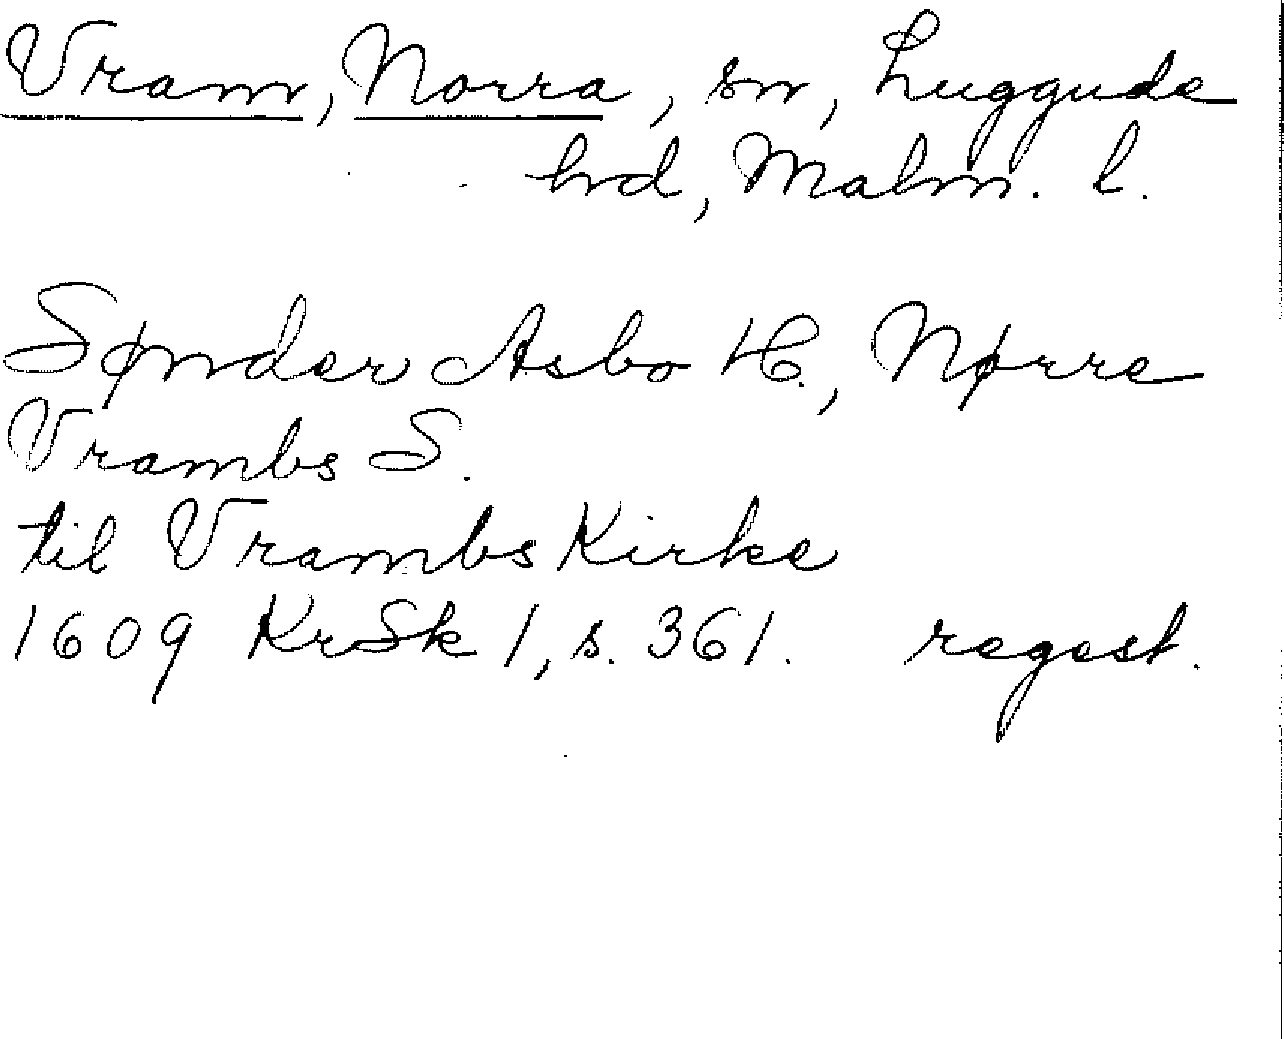 Vram, Norra, sn, Luggude
hrd, Malm. l.
Sønder Asbo H., Nørre
Vrambs S.
til Vrambs Kirke
1609 KrSk 1, s. 361. regest.